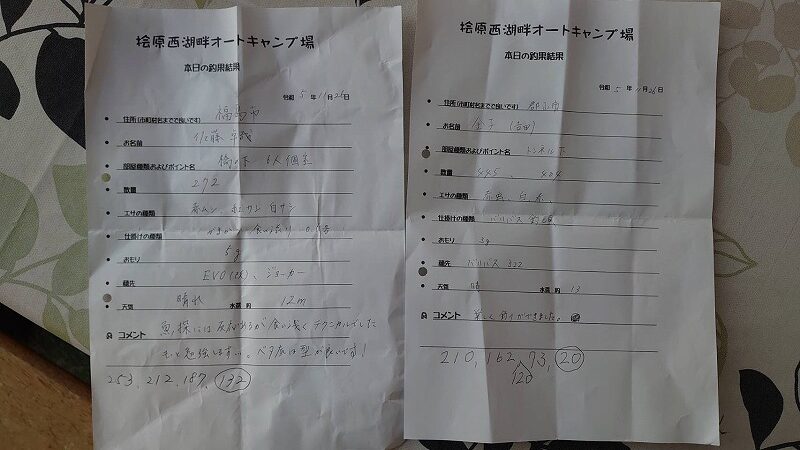 桧原西湖畔オートキャンプ場
本日の釣果結果
令和 5 年 11 月 26 日
住所(市町村名までで良いです) 福島市
お名前 佐藤
部屋種類およびポイント名 橋の下 6人個室
数量 272
エサの種類 赤ムシ、紅サシ 白サシ
仕掛けの種類
おモリ 5g
穂先 EVO、ジョーカー
天気 晴れ 水深 約 12m
コメント 魚探には反応あるが食い浅くテクニカルでした
もっと勉強します。ベタ底は型が良いです!
253, 212, 187, 132
桧原西湖畔オートキャンプ場
本日の釣果結果
令和 5 年 11 月 26 日
住所(市町村名までで良いです) 郡山市
お名前 金子
部屋種類およびポイント名 トンネル下
数量 445、404
エサの種類 赤虫、白
仕掛けの種類 バリバス
おモリ 3g
穂先 バリバス 322
天気 晴 水深 約 13
コメント 楽しく釣りができました。
210, 162, 93, 20
120